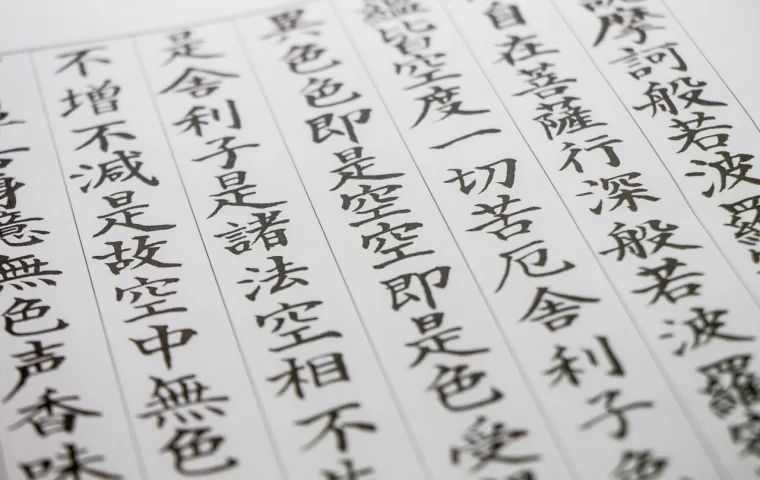 摩訶般若波羅
自在菩薩行深般若波羅
蘊皆空度一切苦厄舎利子色
異色色即是空空即是色受
是舎利子是諸法空相不
不増不減是故空中無色
舌身意無色声香味